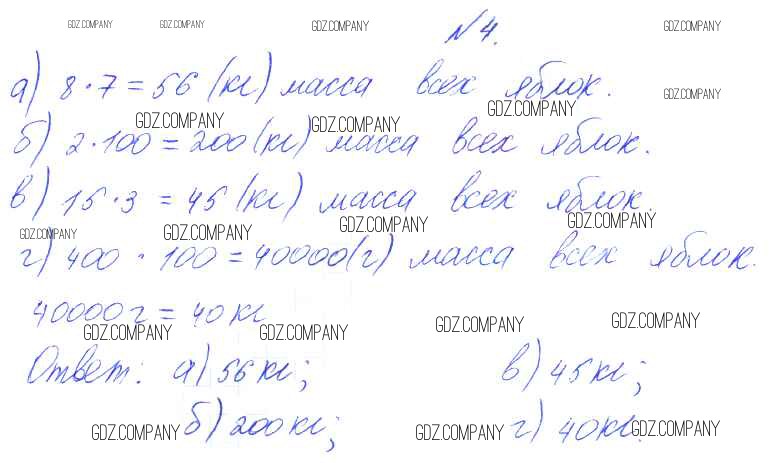 GDZ.COMPANY GDZ.COMPANY GDZ.COMPANY №4. GDZ.COMPANY
а) 8·7=56 (кг) масса всех яблок.
GDZ.COMPANY GDZ.COMPANY GDZ.COMPANY GDZ.COMPANY
б) 2·100=200(кг) масса всех яблок.
в) 15·3=45(кг) масса всех яблок.
GDZ.COMPANY GDZ.COMPANY GDZ.COMPANY GDZ.COMPANY
г) 400·100=40000(г) масса всех яблок.
40000г=40кг
GDZ.COMPANY GDZ.COMPANY GDZ.COMPANY GDZ.COMPANY
Ответ: а) 56кг; в) 45кг;
б) 200кг; г) 40кг.
GDZ.COMPANY GDZ.COMPANY GDZ.COMPANY